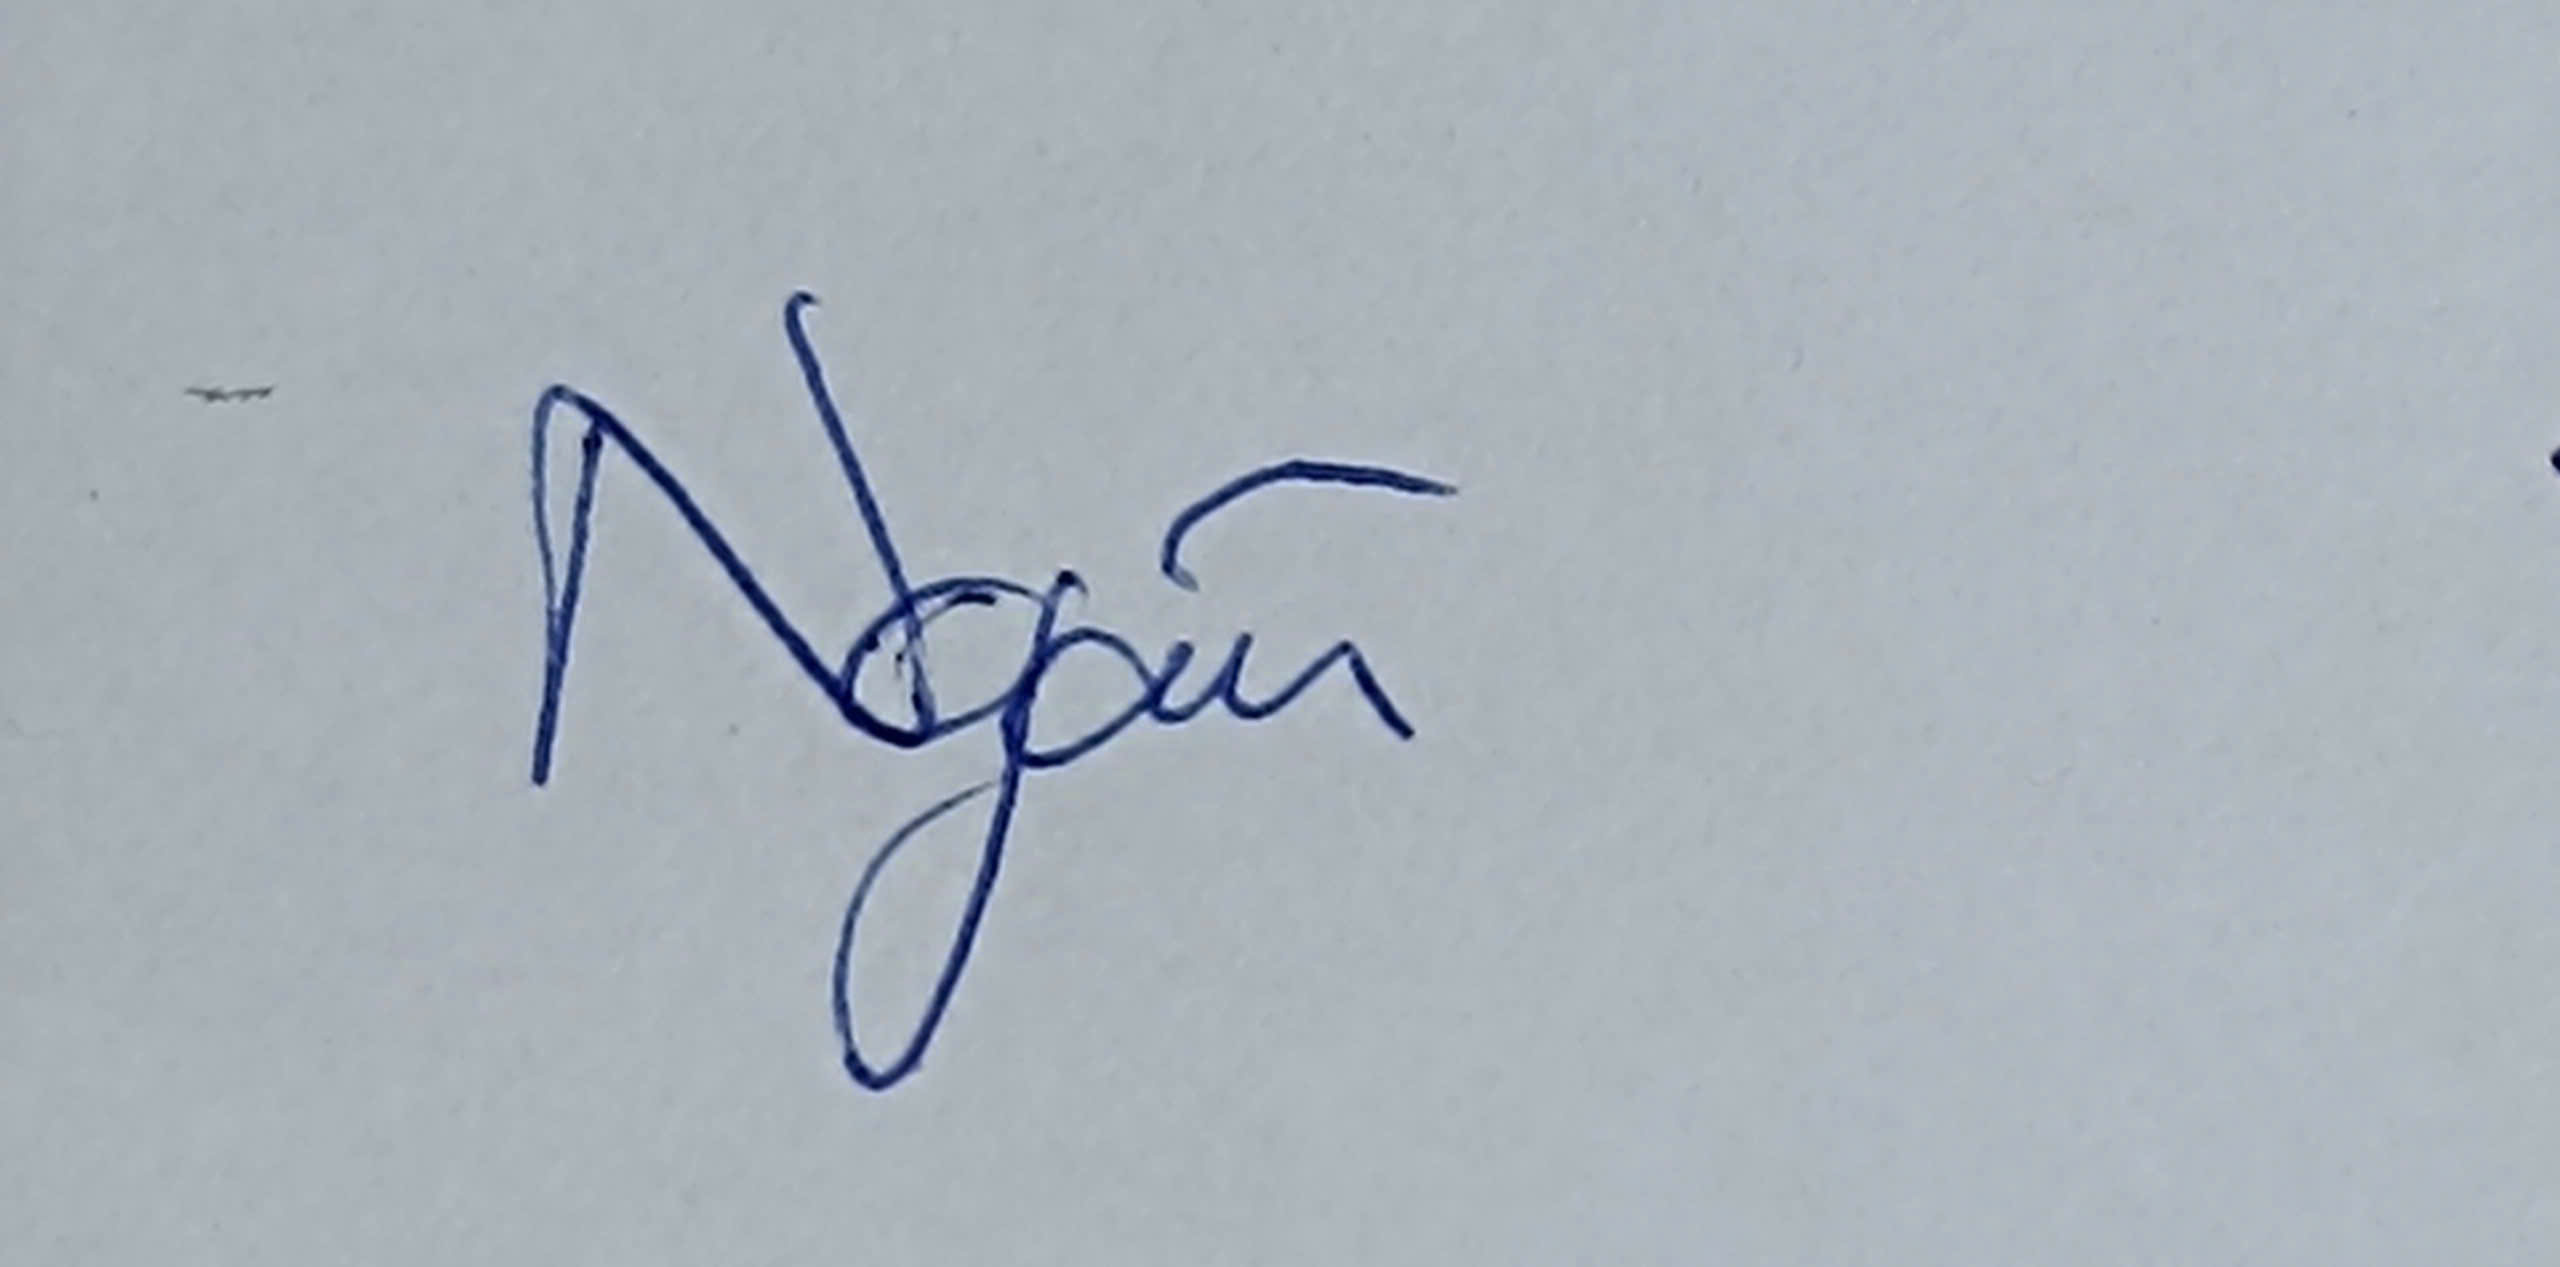 Ngân